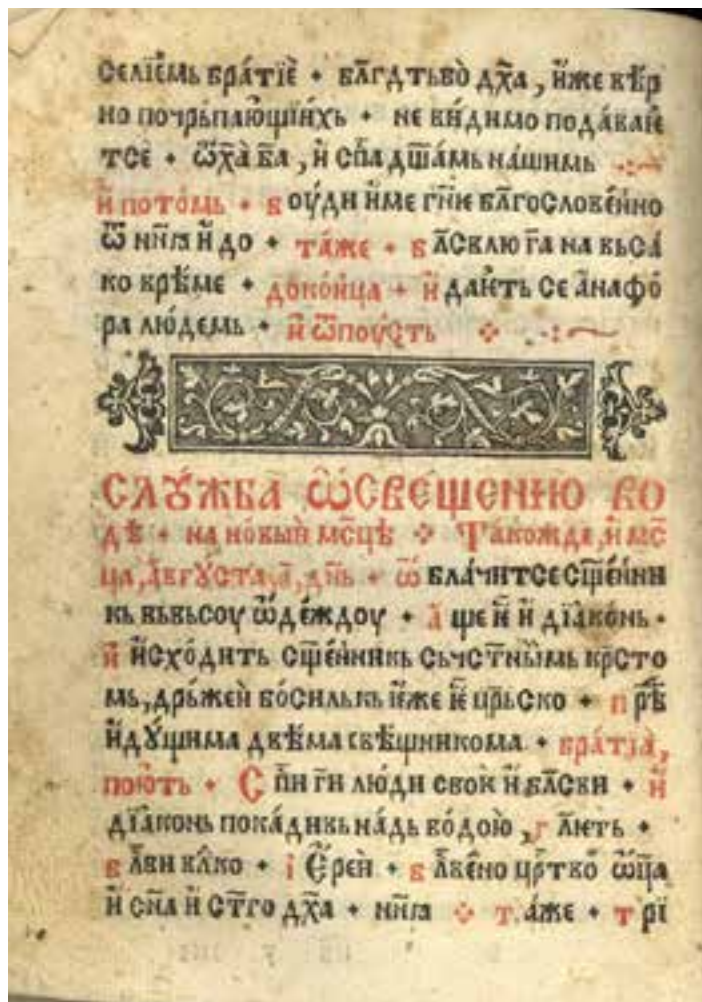 селїемь бра́тїе̏ • бл҃гдтьво̀ дх҃а , и́же вѣ́р
но почрьпаю́щїи́хь • не ви́димо пода́ваѥ
тсе • ѿх҃а̀ б҃а , и҆ сп҃а дш҃а́мь на́шимь ·:~
и҆ пото́мь • боу́ди и҆ме гн҃ѥ бл҃гослове́нно
ѿ нн҃ꙗ и҆ до • та́же • бл҃свлю г҃а на вьса́
ко врѣ́ме • доко́нца • и҆ даѥ́ть се а҆нафо́
ра лю́демь • и҆ ѿпоу́сть ❖ ·:~
СЛꙊЖБА Ѡ҆СВЕЩЕНИЮ ВО
дѣ • на но́выи мс҃цѣ ❖ Та́кожде, и҆ мс҃
ца, а҆вгꙋ́ста, а҃, дн҃ь • ѡ҆ бла́читсе сщ҃е́нни
кь вьвьсоу ѡ҆де́ждоу • а҆ ще ѥ҆ и҆ дїа́конь •
и҆ и҆схо́дить сщ҃е́нникь сьчст҃ны́мь крс҃то
мь, дрьже́й боси́лькь и҆́же ѥ҆ цр҃ьско • прѣ҃
и҆дꙋ́щима двѣ́ма свѣ́щникома • бра́тїа,
пою́ть • Сп҃и г҃и лю́ди своѥ и҆ бл҃сви • и҆
дїа́конь пока́дивь на́дь во́дою , гл҃ѥть •
бл҃ви вл҃ко • і҆е҆ре́й • бл҃ве́но цр҃тво̀ ѡ҆ц҃а
и҆ сн҃а и҆ ст҃го дх҃а • нн҃ꙗ ❖ та́же • трї